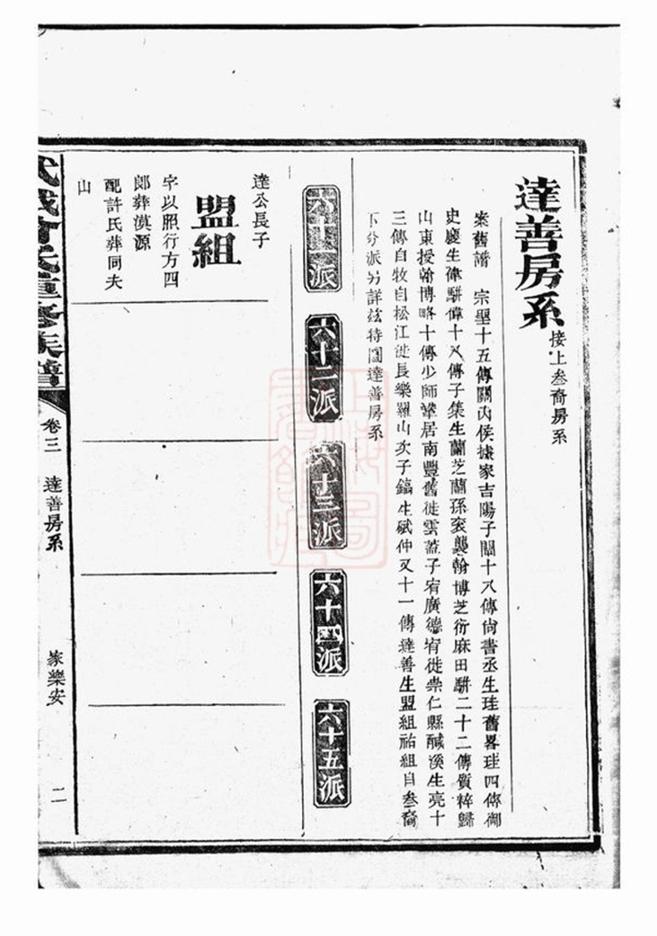 達善房系 接上叁裔房系
案舊譜 宗聖十五傳關內侯據家吉陽子闡十八傳尚書丞生珪舊畧珪四傳御
史慶生偉駢偉十八傳子集生蘭芝蘭孫袞襲翰博芝衍麻田駢二十二傳質粹歸
山東授翰博略十傳少師鞏居南豐舊徙雲蓋子宥廣德宥徙崇仁縣鹹溪生亮十
三傳自牧自松江徙長樂羅山次子鎬生斌仲又十一傳達善生盟組祐組自叁裔
下分派另詳茲特圖達善房系
六十一派
六十二派
六十三派
六十四派
六十五派
達公長子
盟組
字以照行方四
郎葬漠源
配許氏葬同夫
山
武城曾氏重修族譜
卷三 達善房系
家樂安
二